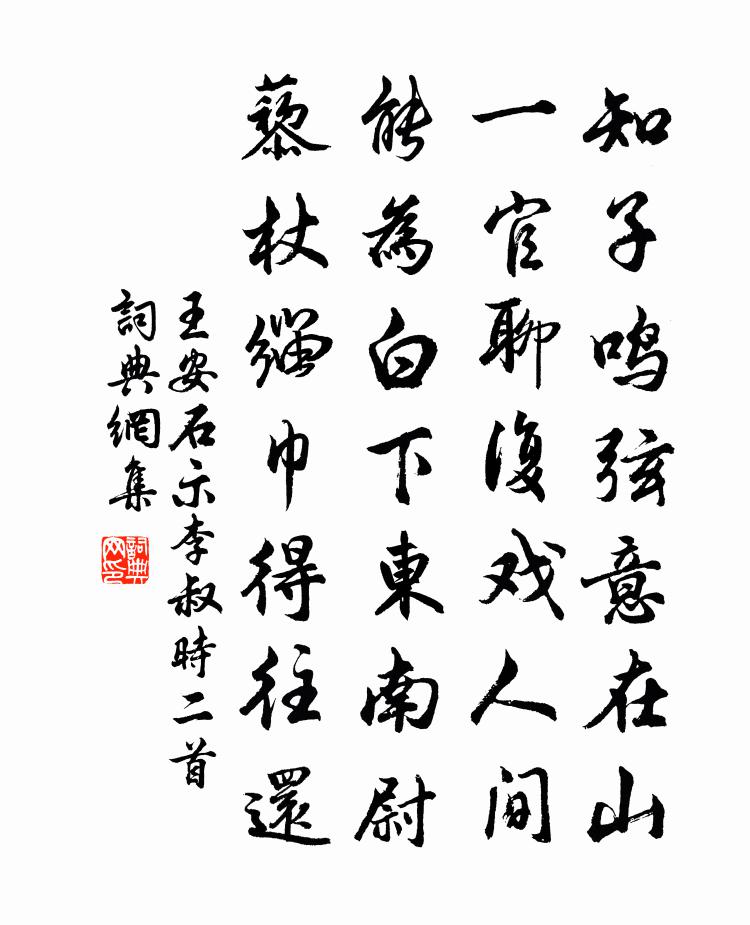 知子鸣弦意在山
一官聊復戏人间
能為白下東南尉
藜杖缁巾得往還
王安石示李叔時二首
詞典網集
詞典網印